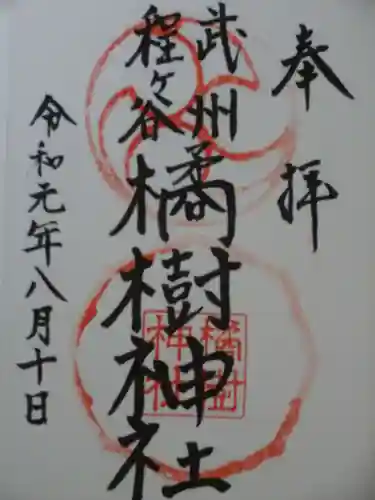 奉拝
武州
程ヶ谷
橘樹神社
橘樹
神社
令和元年八月十日